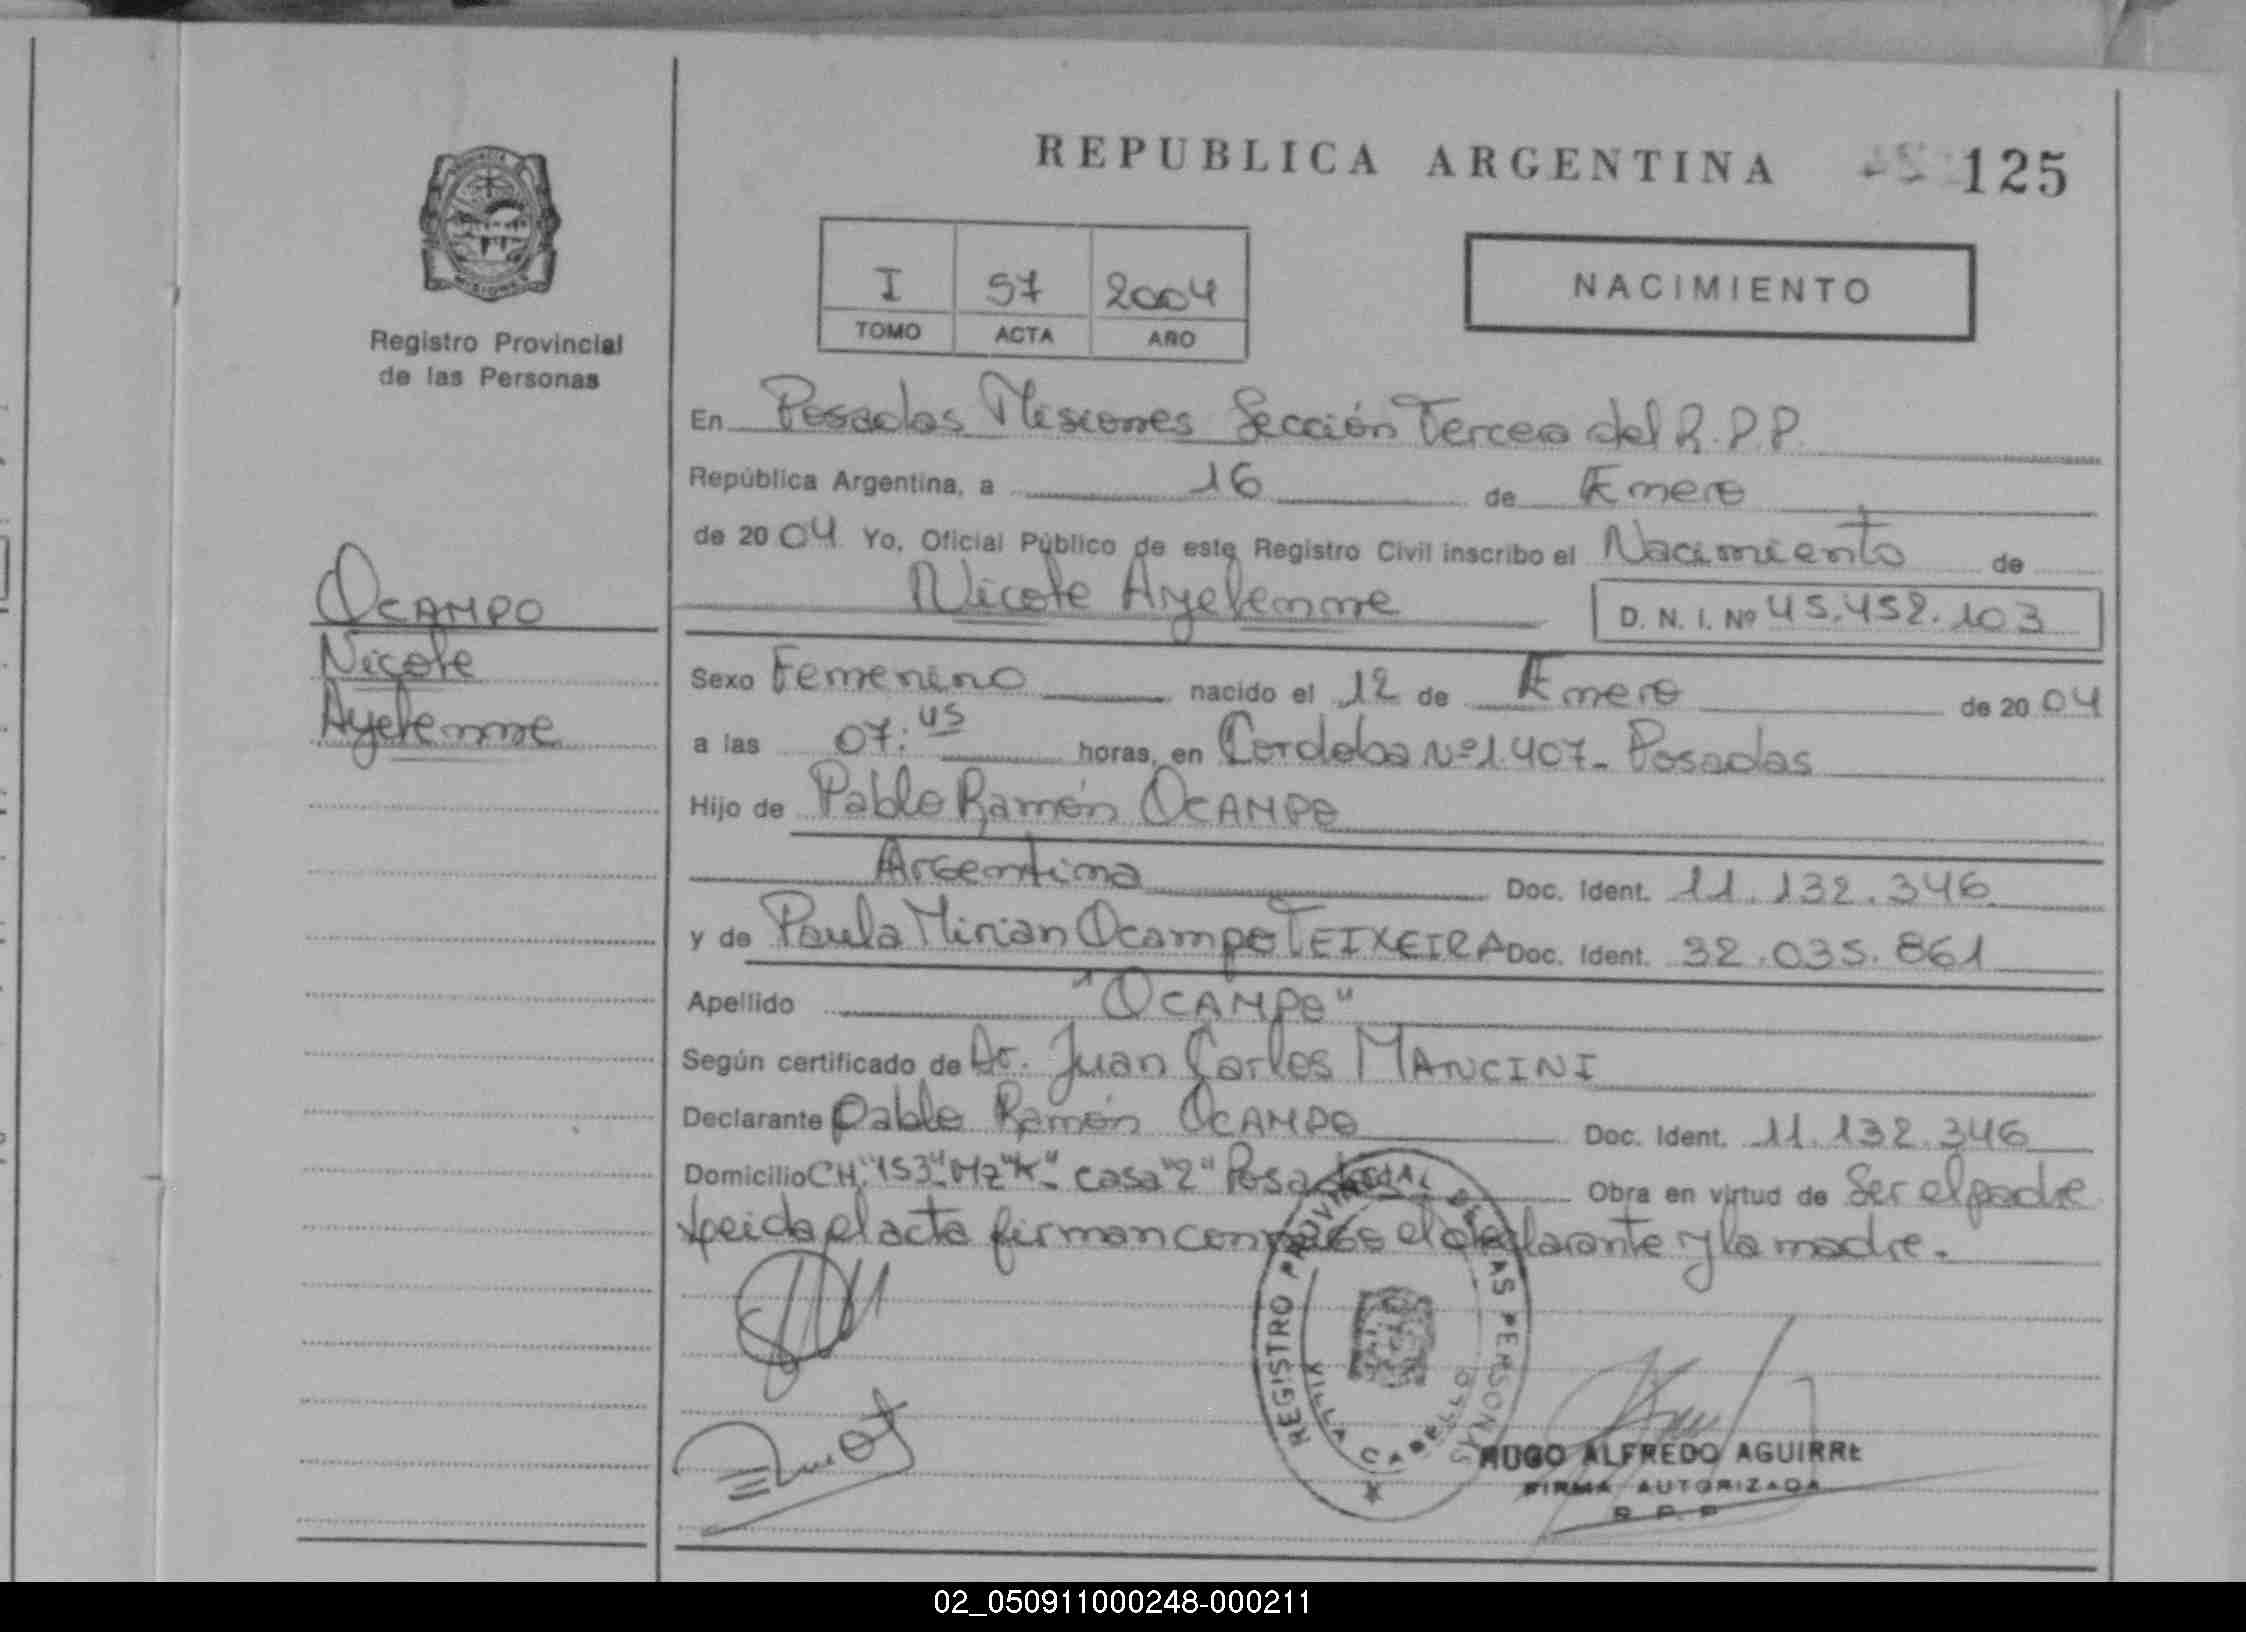 REPUBLICA ARGENTINA 125
Registro Provincial
de las Personas
I 57 2004
TOMO ACTA AÑO
NACIMIENTO
En Posadas Misiones Sección Tercera del R.P.P.
República Argentina, a 16 de Enero
de 2004 Yo, Oficial Público de este Registro Civil inscribo el Nacimiento de
Nicole Ayelenne D. N. I. Nº 45.452.103
OCAMPO
Nicole
Ayelenne
Sexo Femenino nacido el 12 de Enero de 2004
a las 07:45 horas, en Cordoba Nº 1.407- Posadas
Hijo de Pablo Ramón OCAMPO
Argentina Doc. Ident. 11.132.346
y de Paula Mirian Ocampo TEIXEIRA Doc. Ident. 32.035.861
Apellido "OCAMPO"
Según certificado de Dr. Juan Carlos MANCINI
Declarante Pablo Ramón OCAMPO Doc. Ident. 11.132.346
Domicilio CH."153"-Mz"K"- casa "2" Posadas Obra en virtud de Ser el padre
Leida el acta firman con el declarante y la madre.
REGISTRO PROVINCIAL DE LAS PERSONAS
VILLA CABELLO
HUGO ALFREDO AGUIRRE
FIRMA AUTORIZADA
R. P. P.
02_050911000248-000211